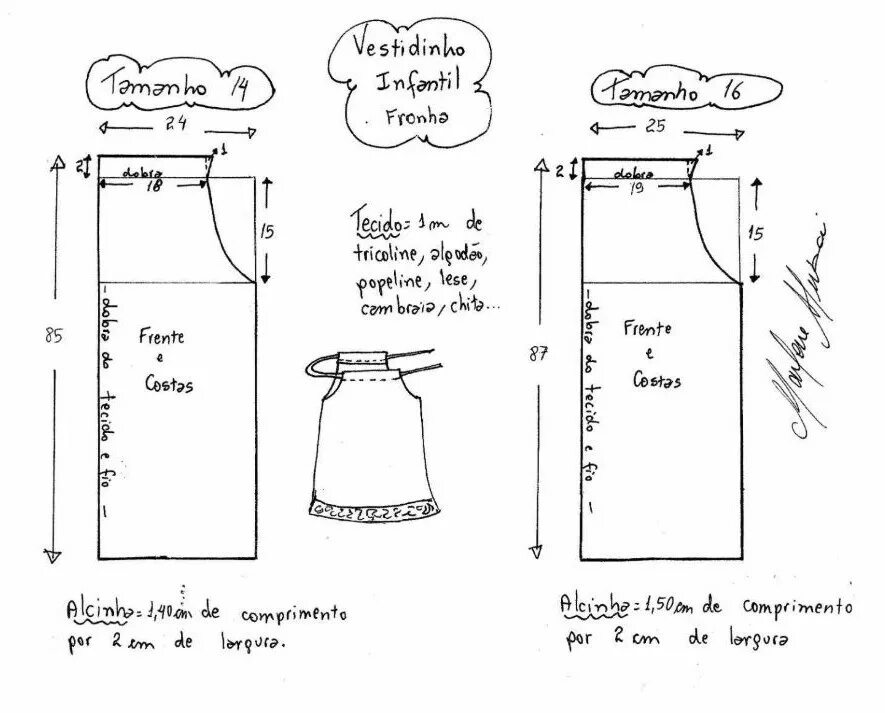 Vestidinho
Infantil
Fronha
Tamanho 14
24
2
1
dobra
18
15
85
Frente
e
Costas
- dobra do tecido e fio -
Alcinha = 1,40 cm de comprimento
por 2 cm de largura.
Tecido = 1 m de
tricoline, algodão,
popeline, lese,
cambraia, chita...
Tamanho 16
25
2
1
dobra
19
15
87
Frente
e
Costas
- dobra do tecido e fio -
Alcinha = 1,50 cm de comprimento
por 2 cm de largura